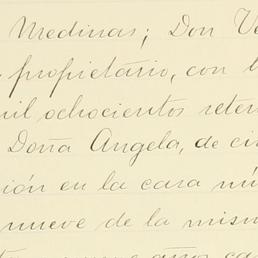 Medinas; Don Ve
propietario, con
mil ochocientos seten
Doña Angela, de ci
ión en la casa nú
nueve de la misma